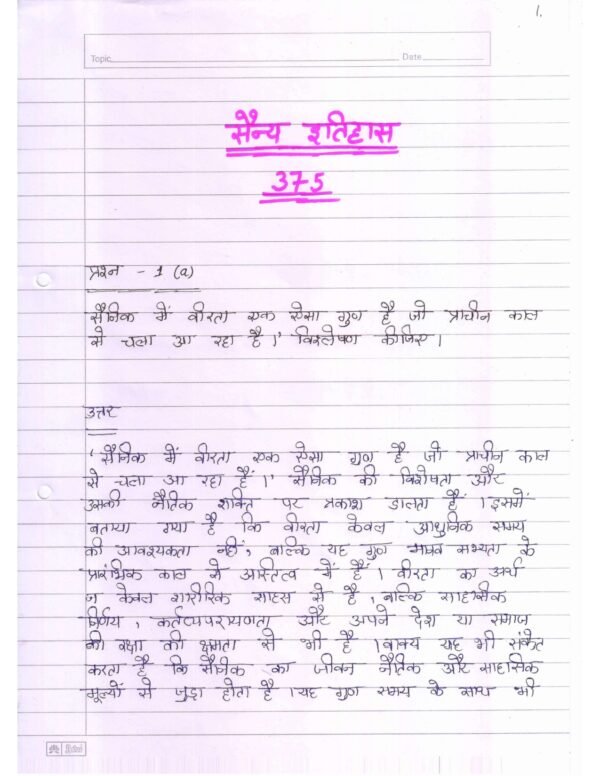 1.
Topic Date
सैन्य इतिहास
375
प्रश्न - 1 (a)
सैनिक में वीरता एक ऐसा गुण है जो प्राचीन काल
से चला आ रहा है।' विश्लेषण कीजिए।
उत्तर
'सैनिक में वीरता एक ऐसा गुण है जो प्राचीन काल
से चला आ रहा है।' सैनिक की विशेषता और
उसकी नैतिक शक्ति पर प्रकाश डालता है। इसमें
बताया गया है कि वीरता केवल आधुनिक समय
की आवश्यकता नहीं, बल्कि यह गुण मानव सभ्यता के
प्रारंभिक काल से अस्तित्व में है। वीरता का अर्थ
न केवल शारीरिक साहस से है, बल्कि साहसिक
निर्णय, कर्तव्यपरायणता और अपने देश या समाज
की रक्षा की क्षमता से भी है। वाक्य यह भी संकेत
करता है कि सैनिक का जीवन नैतिक और साहसिक
मूल्यों से जुड़ा होता है। यह गुण समय के साथ भी